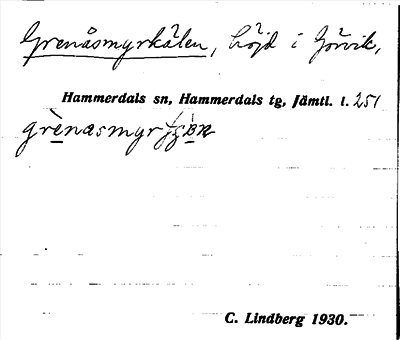 Grenåsmyrkälen, höjd i Görvik,
Hammerdals sn, Hammerdals tg, Jämtl. l. 251
C. Lindberg 1930.